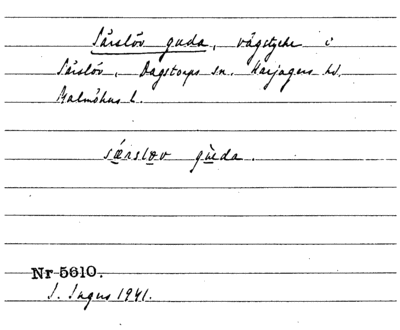 Särslöv gada, vägstycke i
Särslöv, Dagstorps sn. Harjagers hd.
Malmöhus l.
særsløv gada.
Nr 5610.
S. Ingers 1941.